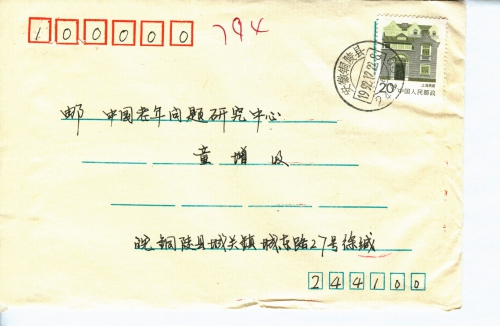 100000
794
安徽铜陵县
1992.12.22
20分
上海民居
中国人民邮政
邮 中国老年问题研究中心
童增收
皖铜陵县城关镇城东路27号徐斌
244100